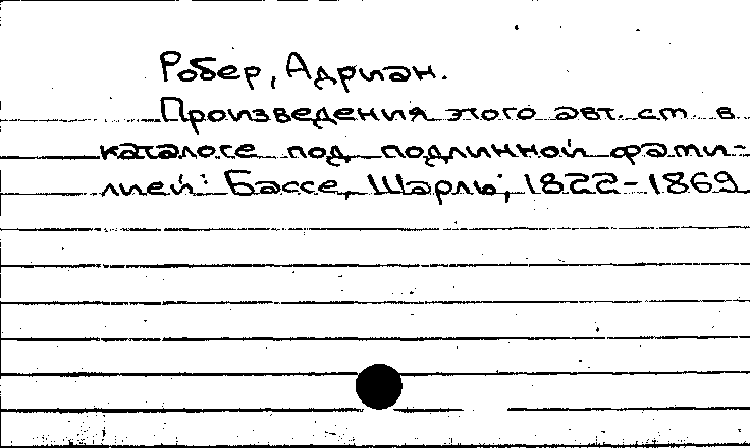 Робер, Адриан.
Произведения этого авт. см. в
каталоге под подлинной фами-
лией: Бассе, Шарль; 1822-1869